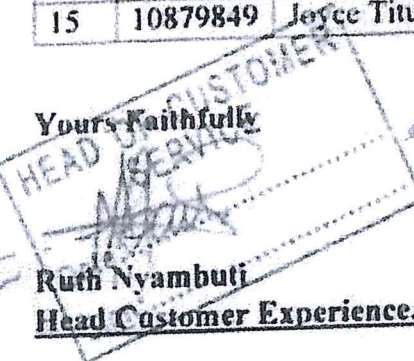 15 10879849 Joyce Titu
Yours Faithfully
HEAD OF CUSTOMER
SERVICE
Ruth Nyambuti
Head Customer Experience.